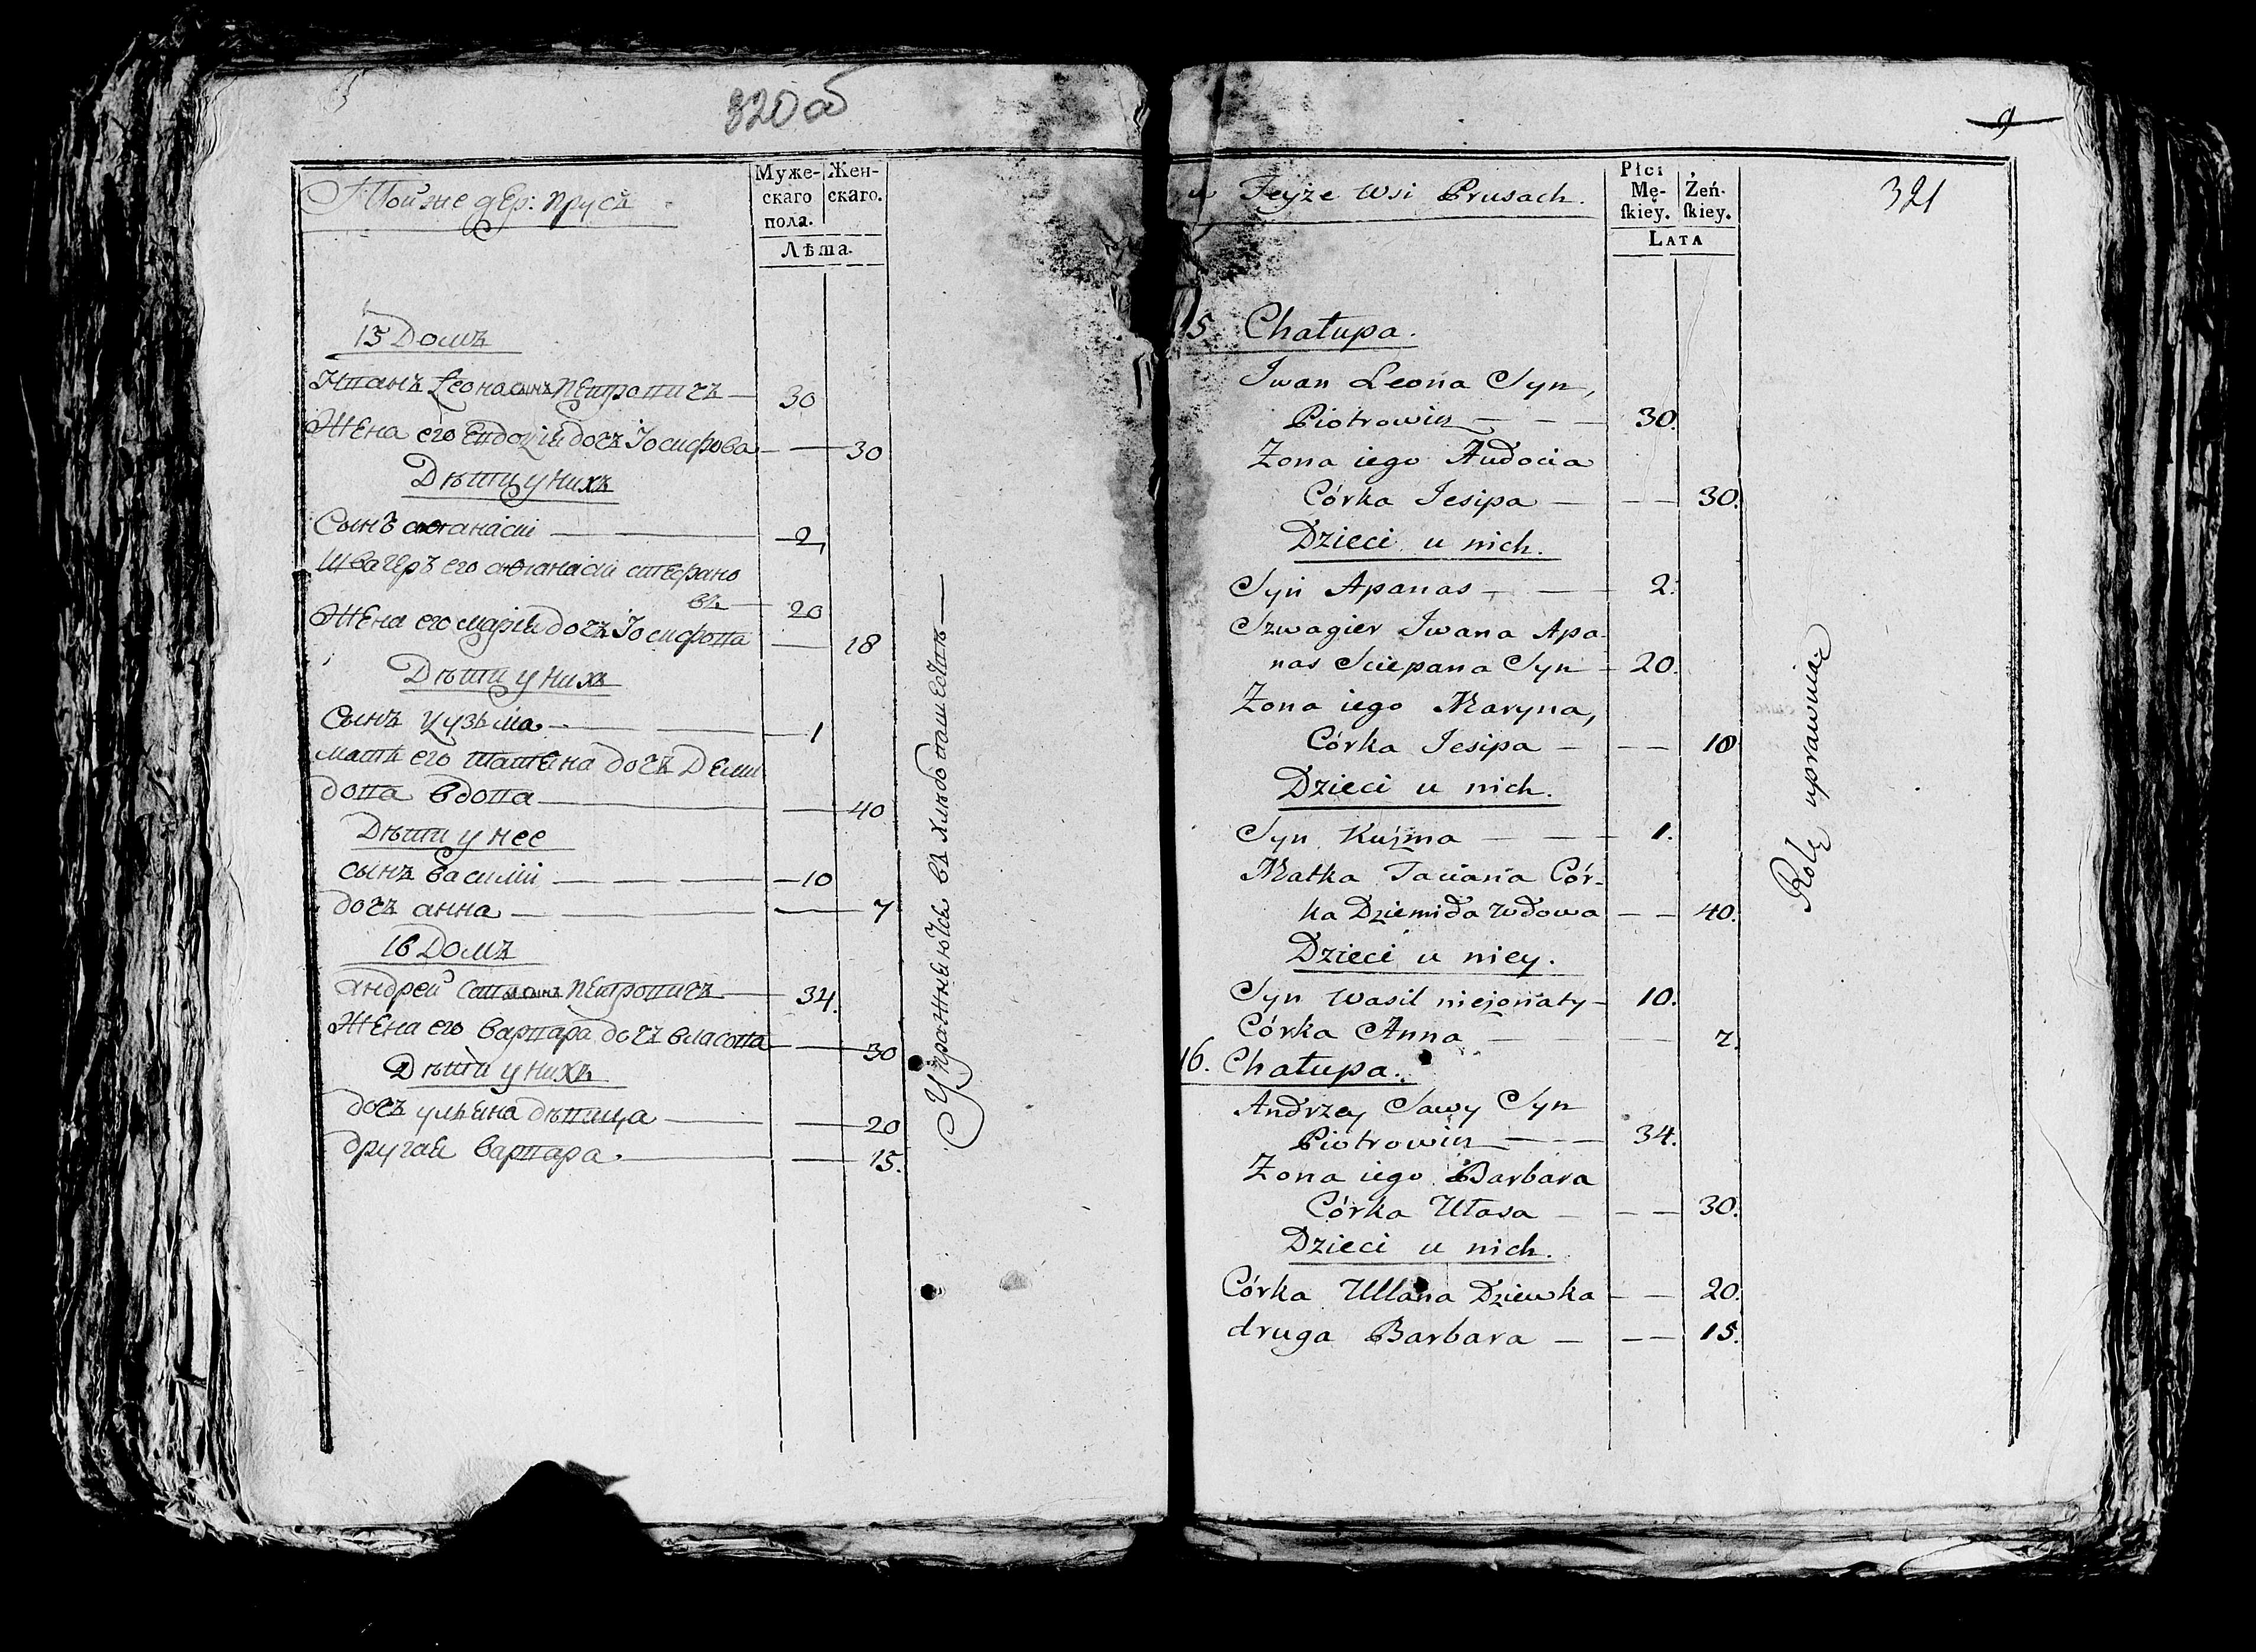 820 об
Тойже дер: Прусъ
Муже-
скаго
пола.
Жен-
скаго.
Лѣта.
15 Домъ
Иванъ Леона сынъ Петровичъ — 30
Жена его Евдокія дочъ Іосифова — 30
Дѣти у нихъ
Сынъ Афанасій — 2
Швагеръ его Афанасій Стефано
въ — 20
Жена его Марія дочъ Іосифова — 18
Дѣти у нихъ
Сынъ Кузьма — 1
Мать его Татяна дочъ Деми
дова вдова — 40
Дѣти у нее
сынъ Василій — 10
дочъ анна — 7
16 Домъ
Андрей Савы сынъ Петровичъ — 34.
Жена его Варвара дочъ Власова — 30
Дѣти у нихъ
дочъ Ульяна дѣвица — 20
другая Варвара — 15.
Упражняются въ хлѣбопашествѣ
9
321
w Teyże Wsi Prusach.
Płci
Mę-
skiey.
Żeń-
skiey.
LATA
5. Chałupa.
Iwan Leona Syn,
Piotrowicz — 30.
Zona iego Audocia
Córka Jesipa — 30.
Dzieci u nich.
Syn Apanas — 2.
Szwagier Iwana Apa-
nas Sciepana Syn — 20.
Zona iego Maryna,
Córka Jesipa — 18
Dzieci u nich.
Syn Kuzma — 1.
Matka Taciana Cór-
ka Dziemida wdowa — 40.
Dzieci u niey.
Syn Wasil nieżonaty — 10.
Córka Anna — 7.
16. Chałupa.
Andrzey Sawy Syn
Piotrowicz — 34.
Zona iego Barbara
Córka Ułasa — 30.
Dzieci u nich.
Córka Ullana Dziewka — 20.
druga Barbara — 15.
Rolę uprawniaią